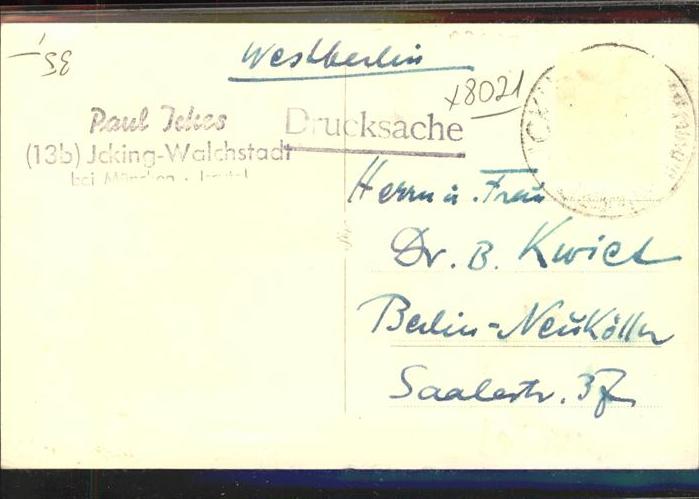 35,-
Westberlin
x8021
Paul Ickes
(13b) Icking-Walchstadt
bei München - Isartal
Drucksache
Herrn u. Frau
Dr. B. Kwiet
Berlin-Neukölln
Saalestr. 37